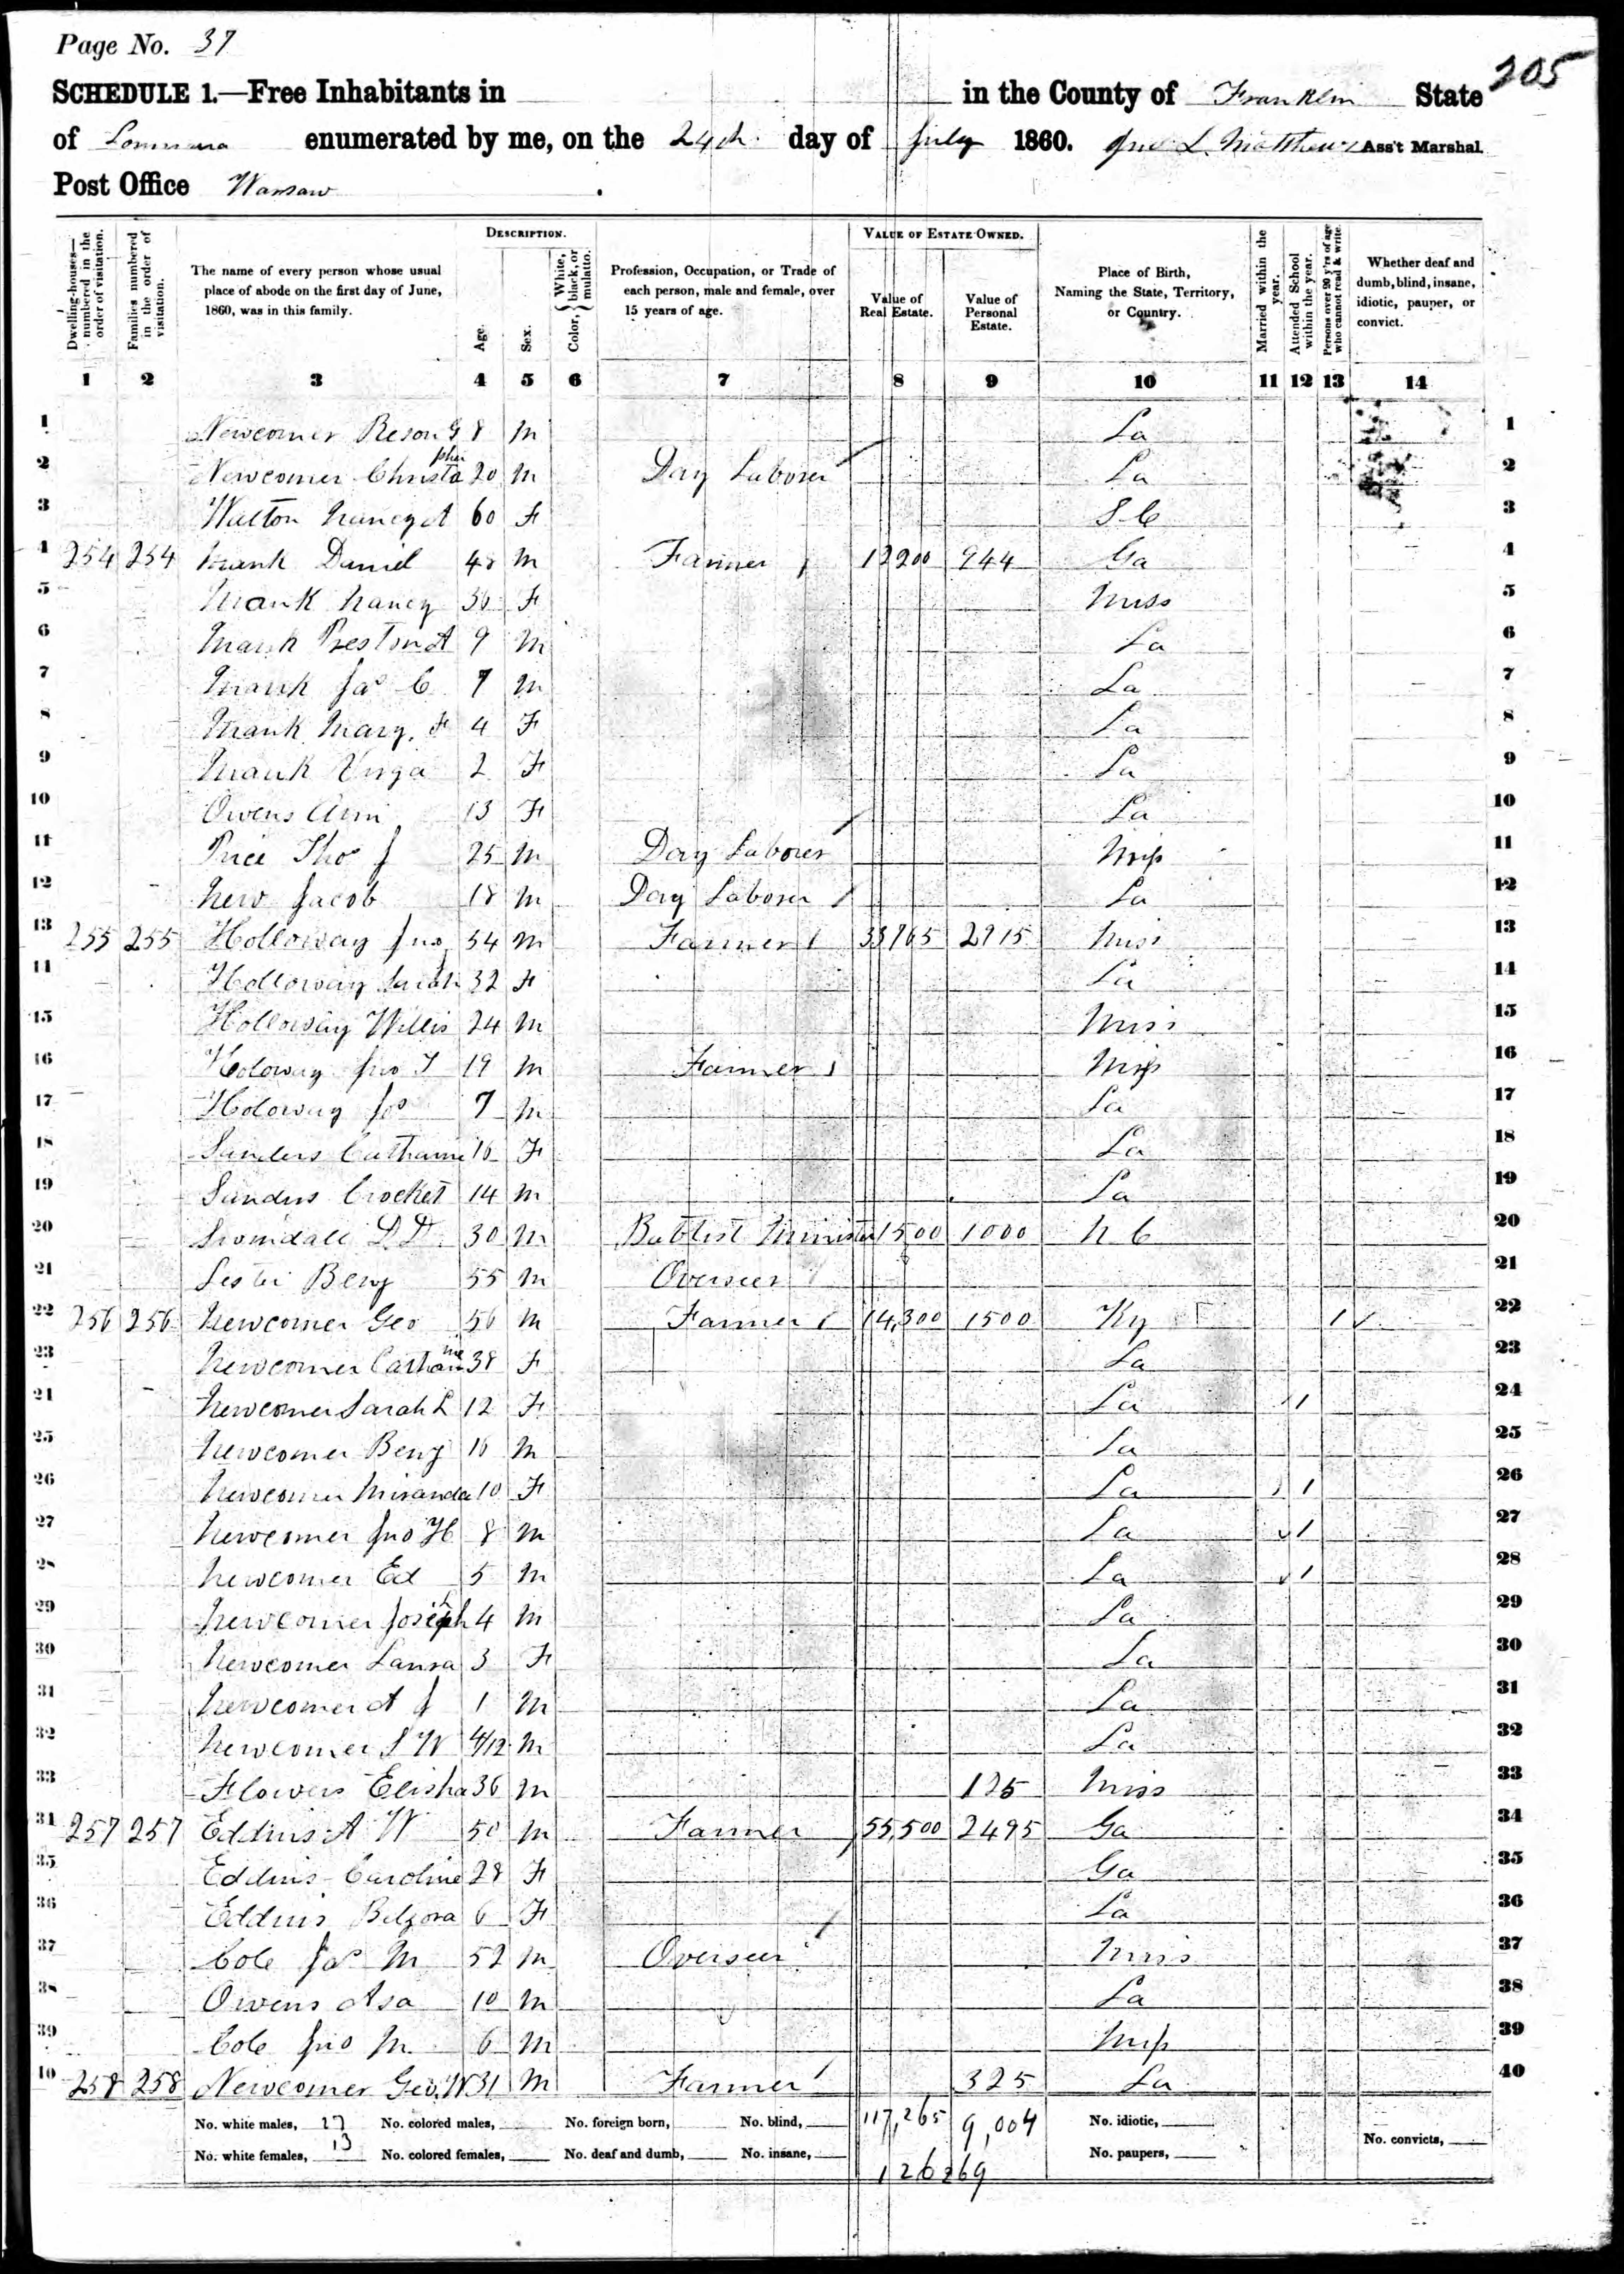 Page No. 37
205
SCHEDULE 1.—Free Inhabitants in in the County of Franklin State
of Louisiana enumerated by me, on the 24th day of July 1860. Jno L. Matthews Ass't Marshal.
Post Office Warsaw .
Dwelling-houses—numbered in the order of visitation.
Families numbered in the order of visitation.
The name of every person whose usual place of abode on the first day of June, 1860, was in this family.
DESCRIPTION.
Age.
Sex.
Color, { White, black, or mulatto.
Profession, Occupation, or Trade of each person, male and female, over 15 years of age.
VALUE OF ESTATE OWNED.
Value of Real Estate.
Value of Personal Estate.
Place of Birth, Naming the State, Territory, or Country.
Married within the year.
Attended School within the year.
Persons over 20 y'rs of age who cannot read & write.
Whether deaf and dumb, blind, insane, idiotic, pauper, or convict.
1 2 3 4 5 6 7 8 9 10 11 12 13 14
1 Newcomer Reson G 8 M La 1
2 Newcomer Christopher 20 M Day Laborer La 2
3 Walton Nancy A 60 F S C 3
4 254 254 Mank Daniel 48 M Farmer 12200 944 Ga 4
5 Mank Nancy 36 F Miss 5
6 Mank Preston A 9 M La 6
7 Mank Jas C 7 M La 7
8 Mank Mary F 4 F La 8
9 Mank Virga 2 F La 9
10 Owens Ann 13 F La 10
11 Price Thos J 25 M Day Laborer Miss 11
12 New Jacob 18 M Day Laborer La 12
13 255 255 Holloway Jno 54 M Farmer 33765 2715 Miss 13
14 Holloway Sarah 32 F La 14
15 Holloway Willis 24 M Miss 15
16 Holoway Jno T 19 M Farmer Miss 16
17 Holoway Jos 7 M La 17
18 Sanders Catharine 16 F La 18
19 Sanders Crocket 14 M La 19
20 D. D. 30 M Babtist Minister 1500 1000 N C 20
21 Lester Benj 55 M Overseer 21
22 256 256 Newcomer Geo 56 M Farmer 14,300 1500 Ky 1 22
23 Newcomer Catharine 38 F La 23
24 Newcomer Sarah L 12 F La 1 24
25 Newcomer Benj 16 M La 25
26 Newcomer Miranda 10 F La 1 26
27 Newcomer Jno H 8 M La 1 27
28 Newcomer Ed 5 M La 1 28
29 Newcomer Joseph 4 M La 29
30 Newcomer Laura 3 F La 30
31 Newcomer A J 1 M La 31
32 Newcomer S W 4/12 M La 32
33 Flowers Elisha 36 M 125 Miss 33
34 257 257 Eddins A W 50 M Farmer 55,500 2495 Ga 34
35 Eddins Caroline 28 F Ga 35
36 Eddins Belzora 6 F La 36
37 Cole Jas M 52 M Overseer Miss 37
38 Owens Asa 10 M La 38
39 Cole Jno M 6 M Miss 39
40 258 258 Newcomer Geo W 31 M Farmer 325 La 40
No. white males, 27 No. colored males, No. foreign born, No. blind, 117,265 9,004 No. idiotic,
No. white females, 13 No. colored females, No. deaf and dumb, No. insane, No. paupers, No. convicts,
126269